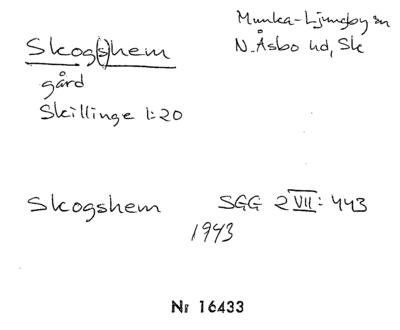 Skog(s)hem
Munka-Ljungby sn
N. Åsbo hd, Sk
gård
Skillinge 1:20
Skogshem SGG 2 VII: 443
1943
Nr 16433